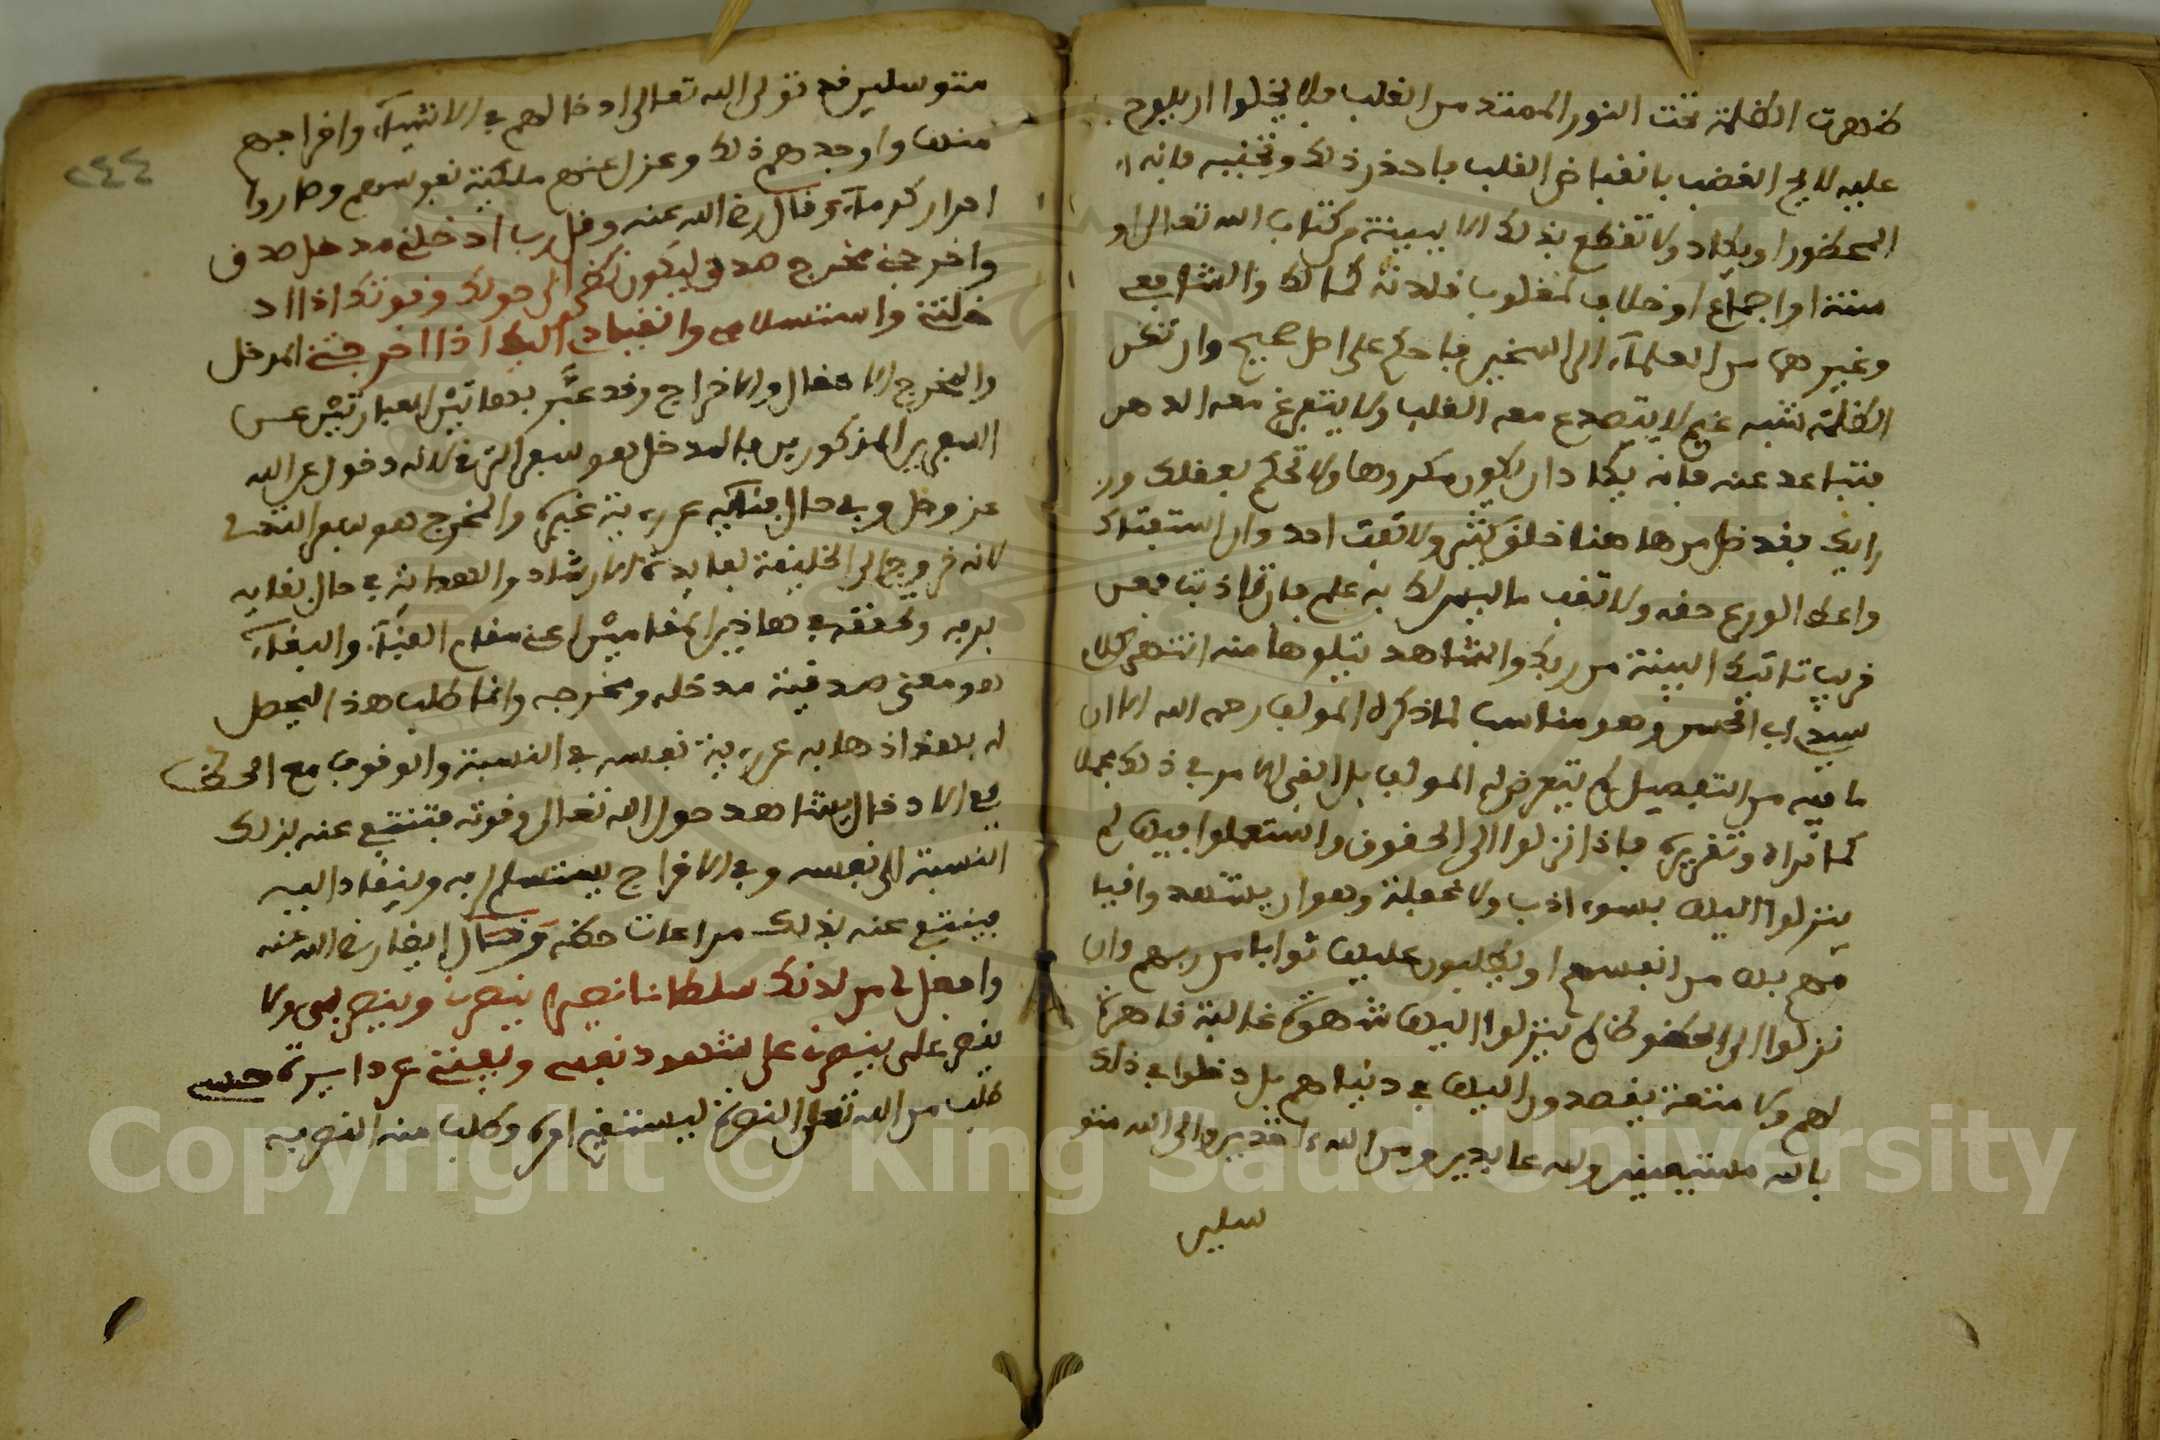 ظهرت الظلمة تحت النور الممتد من القلب فلا يخلوا ان يلوح
عليه لايح الغضب بانقباض القلب فاحذر ذلك وتجنبه فانه الى
المحظور او يكاد ولا تقطع بذلك الا ببينة من كتاب الله تعالى او
سنة او اجماع او خلاف لمغلوب قلدته كمالك والشافعي
وغيرهما من العلماء الى السخير فاحكم على اصل صحيح وان تكن
الظلمة شبه غيم لا يتصدع معه القلب ولا يتفرغ معه الدهن
فتباعد عنه فانه يكاد ان يكون مكروها ولا تحكم بعقلك ور
رايك فقد ضل من هاهنا خلق كثير ولا تفت احد وان استفتاك
واعط الورع حقه ولا تقف ما ليس لك به علم فان تاذبت فعن
قريب تاتيك البينة من ربك والشاهد يتلوها منه انتهى كلام
سيدي ابى الحسن وهو مناسب لما ذكره المولف رحمه الله الا ان
ما فيه من التفصيل لم يتعرض له المولف بل القى الامر في ذلك مجملا
كما تراه وتقريره فاذا نزلوا الى الحقوق واستعملوا فيها لم
ينزلوا اليها بسوء ادب ولا غفلة وهو ان يستعد وافيا
مهم بك من انفسهم او يطلبون عليها ثوابا من ربهم وان
نزلوا الى الحظوظ لم ينزلوا اليها شهوة غالبة قاهرة
لهم ولا متعة يقصدون اليها في دنياهم بل دخلوا في ذلك
بالله مستعينين ولله عابدين ومن الله ءاخذين والى الله متو
سلين
٢٤٤
متوسلين قد تولى الله تعالى ادخالهم في الاشياء واخراجهم
منها واوجدهم ذلك وعزل عنهم ملكية نفوسهم وصاروا
احرار كرماء وقال رضي الله عنه وقل رب ادخلني مدخل صدق
واخرجني مخرج صدق ليكون نظري الى حولك وقوتك اذا اد
خلتني واستسلامي وانقيادي اليك اذا اخرجتني المدخل
والمخرج الادخال والاخراج وقد عبر بهاتين العبارتين عن
السفرين المذكورين فالمدخل هو سفر الترقي لانه دخول على الله
عز وجل في حال فنائه عن رؤية غيره والمخرج هو سفر التدلي
لانه خروج الى الخليقة لفايدة الارشاد والهداية في حال بقايه
بربه وتحققه في هاذين المقامين اعني مقام الفناء والبقاء
هو معنى صدقية مدخله ومخرجه وانما طلب هذا ليحصل
له بهذا ذهابه عن رؤية نفسه في النسبة والوقوف مع الحظ
في الادخال يشاهد حول الله تعالى وقوته فتنتفي عنه بذلك
النسبة الى نفسه وفي الاخراج يستسلم لربه وينقاد اليه
فينتفي عنه بذلك مراعات حظه وقال ايضا رضي الله عنه
واجعل لي من لدنك سلطانا نصيرا ينصرني وينصر بى ولا
ينصر علي ينصرني على شهود نفسي ويفنني عن دايرة حسي
طلب من الله تعلى النصرة ليستقيم امره وطلب منه النصر به